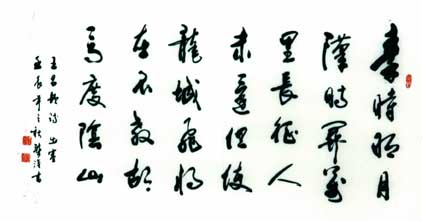 秦時明月
漢時关萬
里長征人
未還但使
龍城飛將
在不教胡
馬度陰山
王昌龄詩 出塞
壬辰年之秋